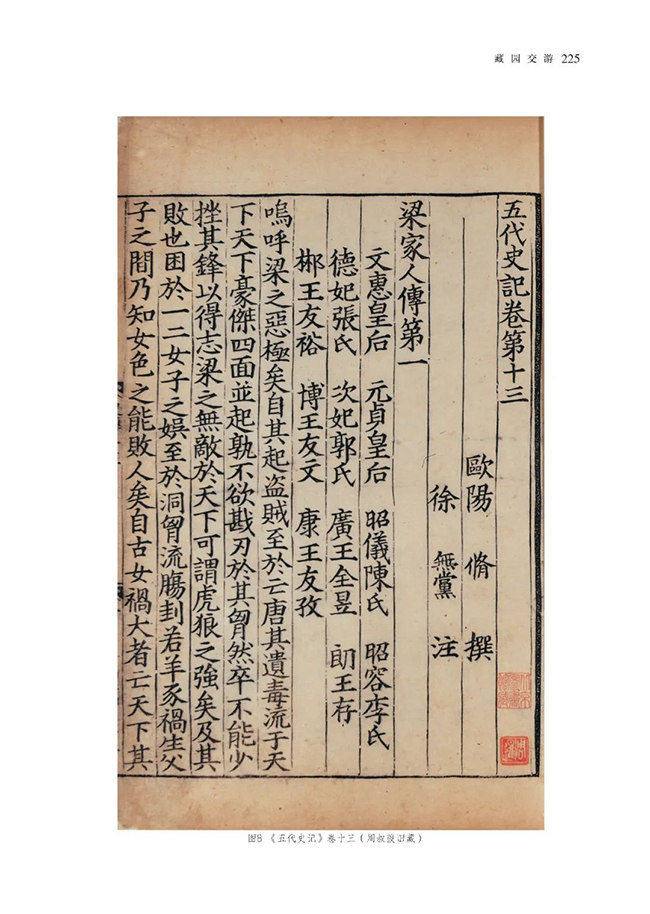 藏园交游 225
五代史記卷第十三
歐陽 脩 撰
徐 無黨 注
梁家人傳第一
文惠皇后 元貞皇后 昭儀陳氏 昭容李氏
德妃張氏 次妃郭氏 廣王全昱 朗王存
郴王友裕 博王友文 康王友孜
嗚呼梁之惡極矣自其起盗賊至於亡唐其遺毒流于天
下天下豪傑四面並起孰不欲戡刃於其胷然卒不能少
挫其鋒以得志梁之無敵於天下可謂虎狼之強矣及其
敗也因於一二女子之娱至於洞胷流腸刲若羊豕禍生父
子之間乃知女色之能敗人矣自古女禍大者亡天下其
图8 《五代史记》卷十三（周叔弢旧藏）